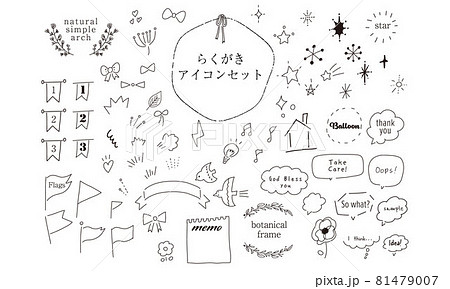 natural
simple
arch
らくがき
アイコンセット
star
1
1
2
2
3
3
Balloon!
thank
you
Take
Care!
Oops!
God Bless
you
Flags
So what?
sample
memo
botanical
frame
I think...
Idea!
PIXTA
pixta.jp - 81479007